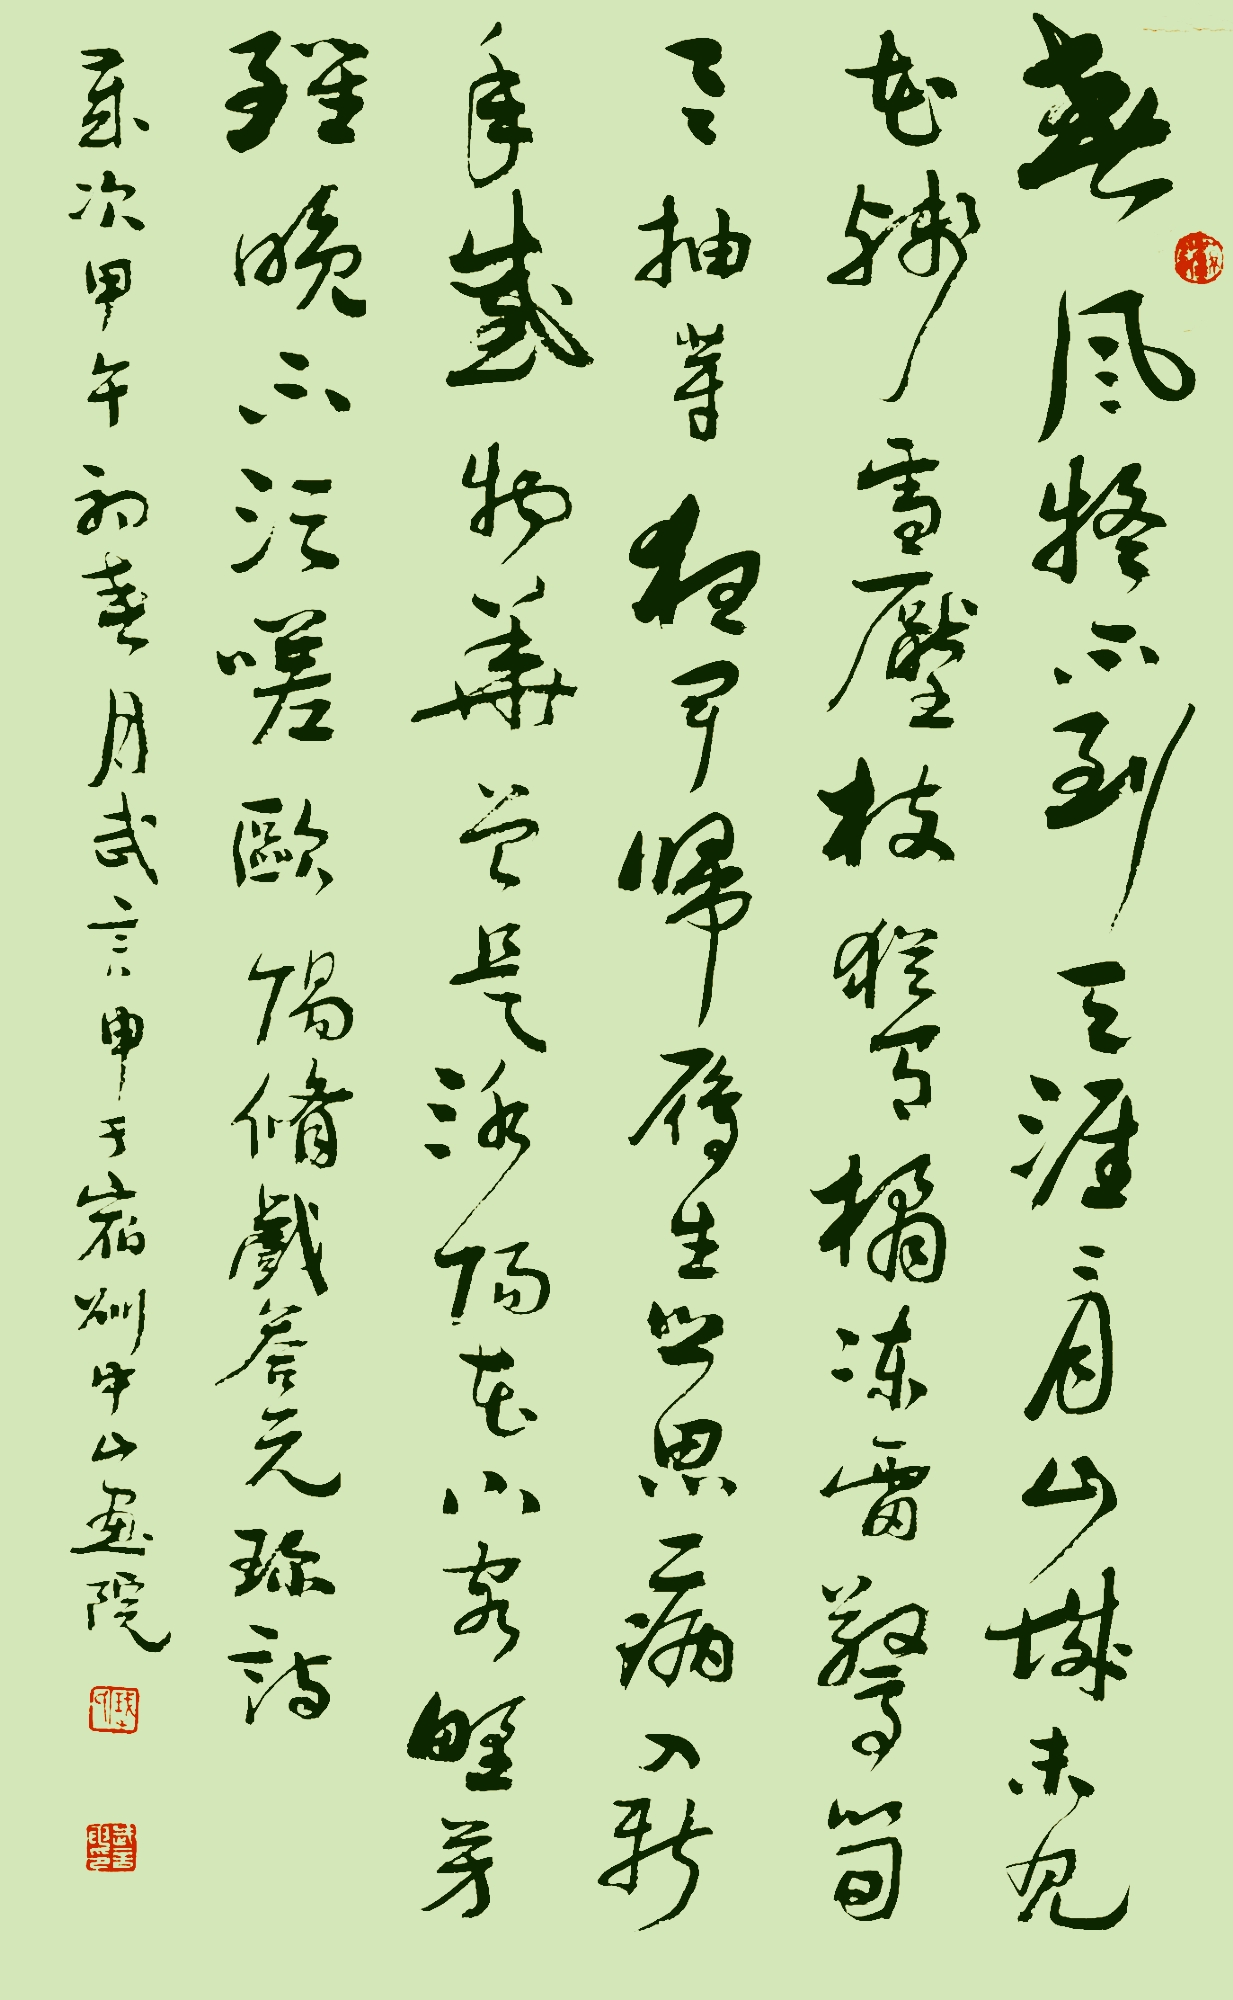 春風疑不到天涯二月山城未見
花殘雪壓枝猶有橘凍雷驚筍
欲抽芽夜聞歸雁生鄉思病入新
年感物華曾是洛陽花下客野芳
雖晚不須嗟歐陽脩戲答元珍詩
歲次甲午初春月武言申于宿州中山畫院